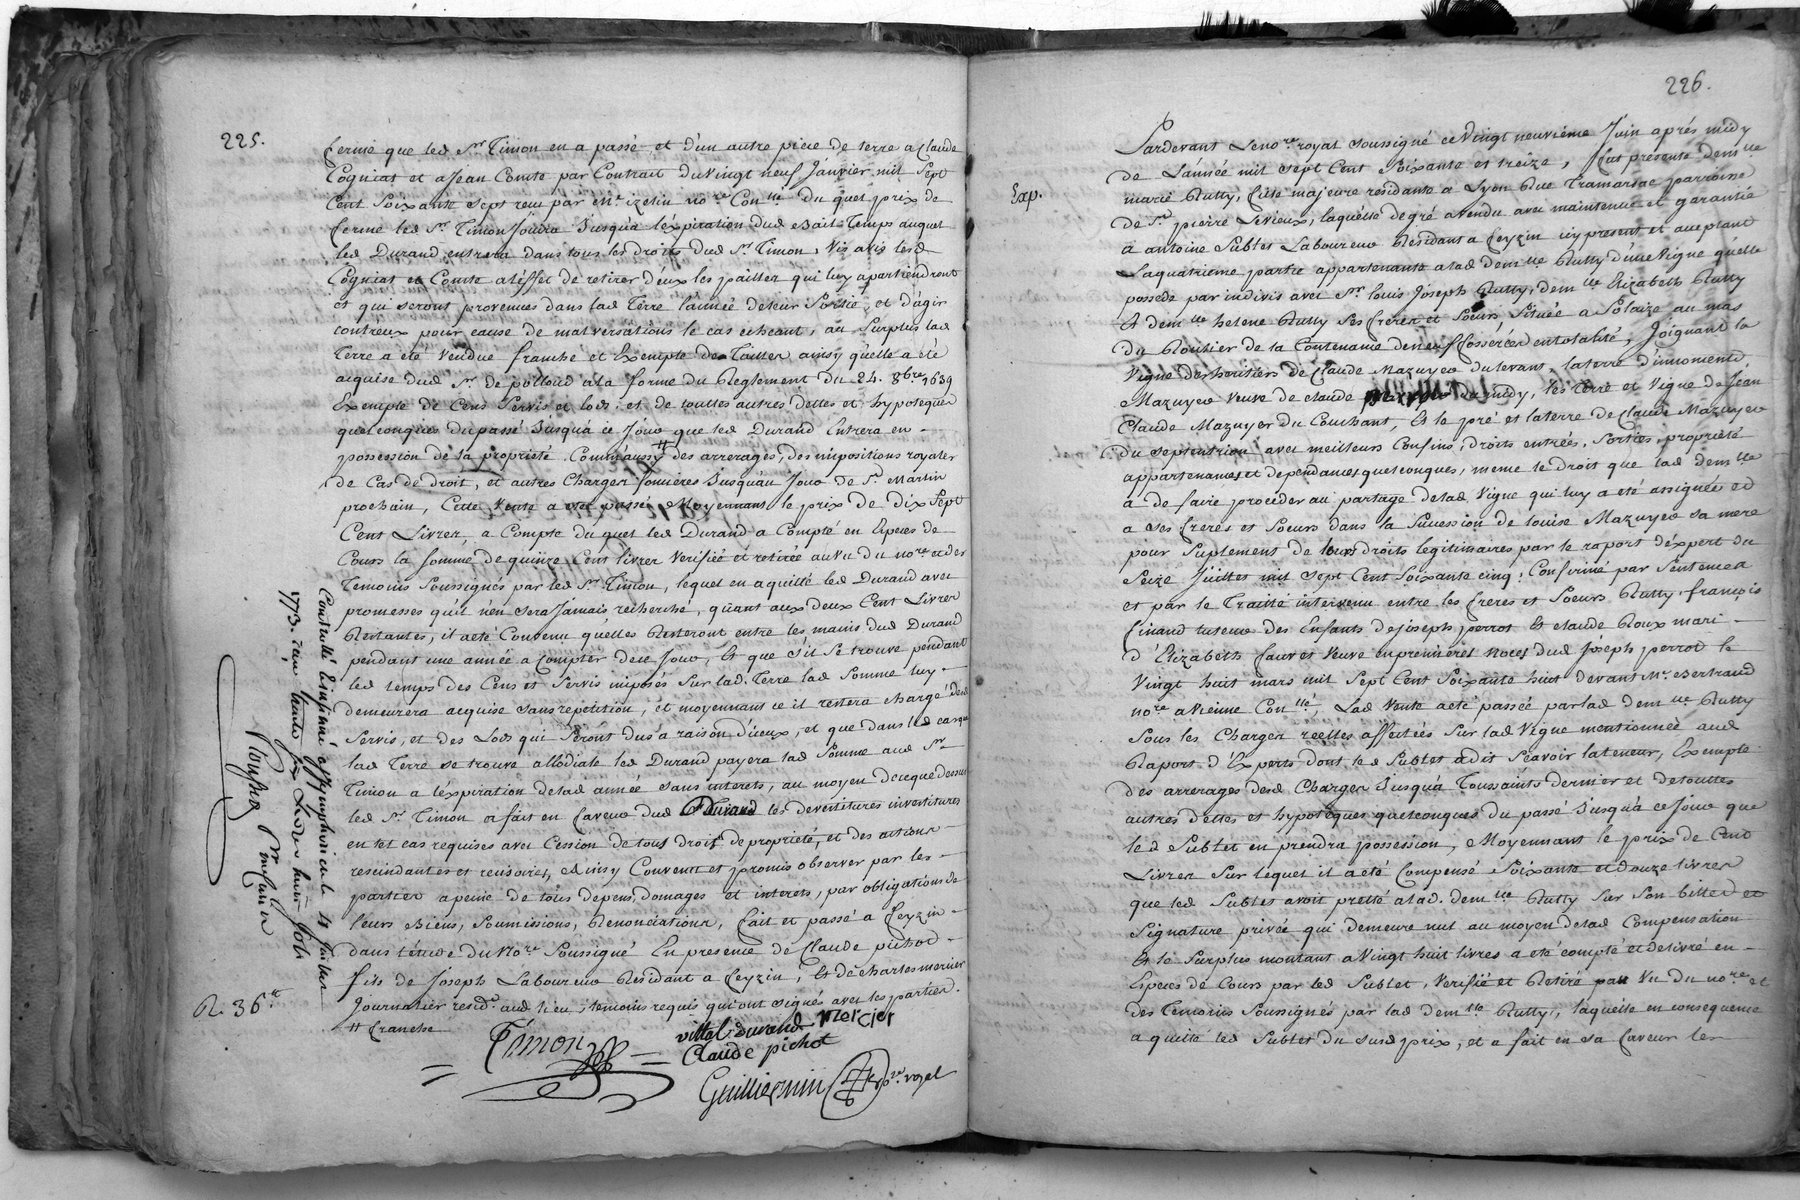 225.
ferme que led Sr Timon en a passé et d'un autre piece de terre a Claude
Cogniat et a Jean Comte par Contrait du vingt neuf Janvier mil Sept
Cent Soixante Sept recu par Me izelin nore Con du quel prix de
ferme led Sr Timon Jouira Jusqu'a l'expiration dud Bail Temps auquel
led Durand entrera dans tous les droits dud Sr Timon, vis avis lesd
Cogniat et Comte a l'effet de retirer d'eux les pailles qui luy apartiendront
et qui seront provenues dans lad Terre l'année de leur Sortie, et d'agir
contreux pour cause de malversations le cas echeant, au Surplus lad
Terre a été vendue franche et Exempte de Tailles ainsy qu'elle a été
acquise dud Sr de polloud a la forme du Reglement du 24. 8bre 1639
Exempte de Cens Servis et lods, et de touttes autres dettes et hypoteques
quelconques du passé Jusqu'a ce Jour que led Durand Entrera en
possession de la propriété Comm'aussy # des arrerages, des impositions royales
de Cas de droit, et autres Charges foncieres Jusqu'au Jour de St Martin
prochain, Cette Vente a eté passée Moyennant le prix de Dix Sept
Cent Livres, a Compte du quel led Durand a Compté en Especes de
Cours la somme de quinze Cent livres Verifiée et retirée au vu du nore et des
Temoins Soussignés par led Sr Timon, lequel en a quitté led Durand avec
promesses qu'il n'en sera Jamais recherché, quant aux deux Cent Livres
Restantes, il a eté Convenu qu'elles Resteront entre les mains dud Durand
pendant une année a Compter de ce Jour, Et que s'il se trouve pendant
led temps des Cens et Servis imposés Sur lad. Terre lad Somme luy
demeurera acquise sans repetition, et moyennant ce il restera chargé desd
Servis, et des Lods qui Seront dus a raison d'iceux, et que dans led cas que
lad Terre se trouve allodiale led Durand payera lad Somme aud Sr
Timon a l'expiration delad année sans interets, au moyen de ce que dessus
led Sr Timon a fait en faveur dud Durand les devestitures investitures
en tel cas requises avec Cession de tous droits de propriété, et des actions
rescindantes et recisoires, ainsy Convenu et promis observer par les
parties a peine de tous depens, domages et interets, par obligations de
leurs Biens, Soumissions, Renonciations, fait et passé a feyzin
dans l'etude du Nore Soussigné En presence de Claude pichot
fils de Joseph Laboureur Residant a feyzin, Et de charles mercier
Journalier residt aud lieu, temoins requis qui ont signés avec les parties.
# franche
Timon
vittal durand mercier
Claude pichot
Guilliermin nore royal
R. 36
Controllé Insinué a St Symphorien le 11 Juillet
1773. reçu trente six Livres huit sols
226.
Exp.
Pardevant Le nore royal soussigné ce Vingt neuvième Juin aprés midy
de L'année mil Sept Cent Soixante et treize, fut presente demlle
marie Rutty, fille majeure residante a Lyon Rue Tramassac parroisse
de St pierre Levieux, laquelle de gré a vendu avec maintenue et garantie
a antoine Sublet Laboureur Residant a feyzin icy present et acceptant
La quatrieme partie appartenante a lad demlle Rutty d'une Vigne qu'elle
possede par indivis avec Sr louis Joseph Rutty, demlle Elizabeth Rutty
Et demlle helene Rutty Ses freres et Soeurs Située a Solaize au mas
du Rontier de la Contenance de neuf fosserées en totalité, Joignant la
Vigne des heritiers de Claude Mazuyer du levant, la terre d'innomende
Mazuyer veuve de claude du midy, les terre et Vigne de Jean
Claude Mazuyer du Couchant, Et le pré et la terre de Claude Mazuyer
du septentrion avec meilleurs Confins, droits entrées, Sorties, propriété
appartenances et dependances quelconques, meme le droit que lad demlle
a de faire proceder au partage delad Vigne qui luy a eté assignée et
a ses freres et Soeurs dans la Succession de louise Mazuyer sa mere
pour Suplement de leurs droits legitimaires par le raport d'expert du
Seize Juillet mil Sept Cent Soixante cinq, Confirmé par Sentences
et par le Traitté intervenu entre les freres et Soeurs Rutty, françois
finand tuteur des Enfants de Joseph perrot Et claude Roux mari
d'Elizabeth fauret Veuve en premieres noces dud Joseph perrot le
Vingt huit mars mil Sept Cent Soixante huit devant Me Bertrand
nore a Vienne Con, Lad Vente a eté passée par lad demlle Rutty
Sous les Charges réelles affectées Sur lad Vigne mentionnée aud
Raport d'Experts dont led Sublet a dit Scavoir la teneur, Exempte
des arrerages desd Charges Jusqu'a Toussaints dernier et de touttes
autres dettes et hypoteques quelconques du passé Jusqu'a ce Jour que
led Sublet en prendra possession, Moyennant le prix de Cent
Livres Sur lequel il a eté Compensé Soixante et douze livres
que led Sublet avoit pretté a lad. demlle Rutty Sur Son billet et
Signature privée qui demeure nul au moyen delad Compensation
Et le Surplus montant a Vingt huit livres a eté compté et delivré en
Especes de Cours par led Sublet, Verifié et Retiré au Vu du nore et
des Temoins Soussignés par lad demlle Rutty, laquelle en consequence
a quitté led Sublet du susd prix, et a fait en sa faveur les